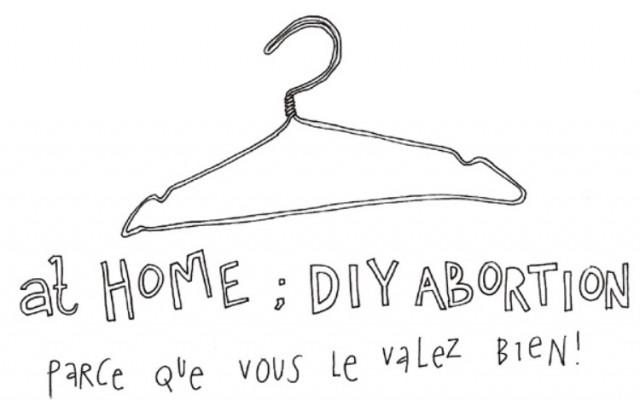 at HOME ; DIY ABORTION
PARCE QUE VOUS LE VALEZ BIEN!